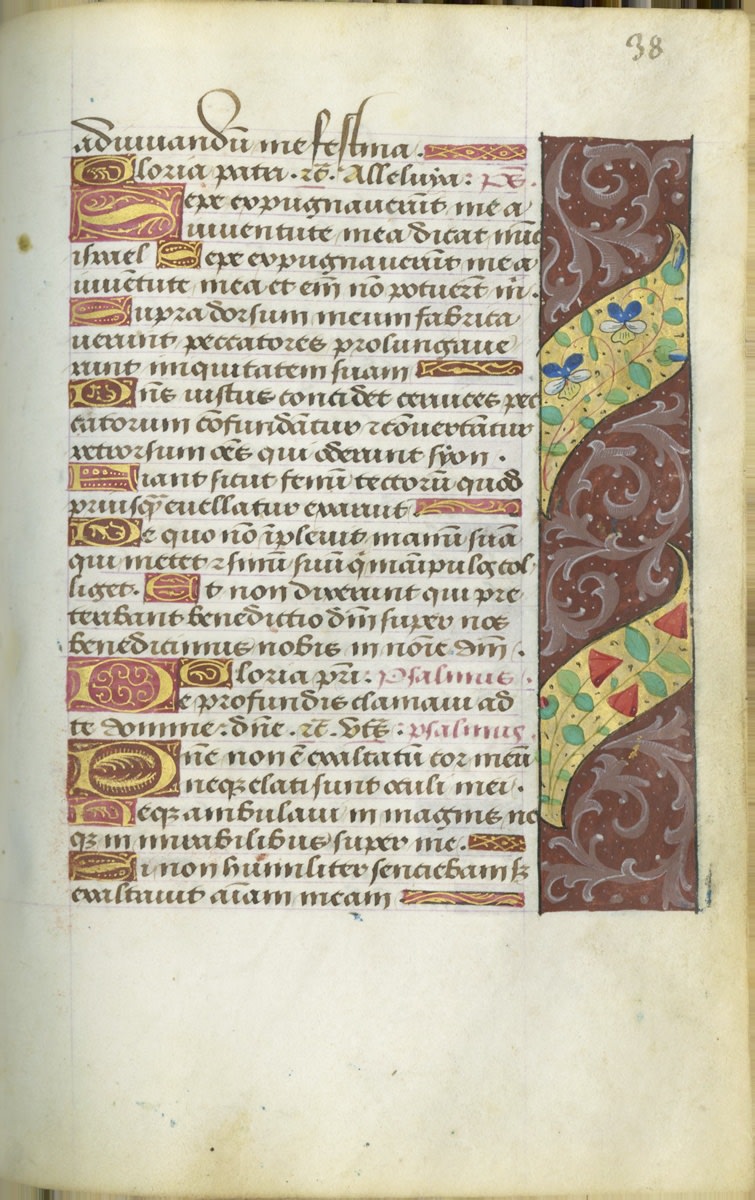 38
adiuuandũ me festina .
Gloria patri . et̃ . Alleluya : p̃s .
Sepe expugnauerũt me a
iuuentute mea dicat nũc
israel Sepe expugnauerũt me a
iuuẽtute mea et em̃ nõ potuerũt m̃ .
Supra dorsum meum fabrica
uerunt peccatores prolungaue
runt iniquitatem suam
Dñs iustus concidet ceruices pec
catorum cõfundãtur ⁊ cõuertãtur
retrorsum oẽs qui oderunt syon .
Fiant sicut fenũ tectorũ quod
priusq̃ euellatur exarunt
De quo nõ ĩpleuit manũ suã
qui metet ⁊ sinũ suũ q̃ mãipulꝯ col
liget . Et non dixerunt qui pre
teribant benedictio dñi super nos
benediximus nobis in noĩe dñi .
Gloria pr̃i : Psalmus :
De profundis clamaui ad
te domine : dñe . et̃ . vts̃ : psalmus .
Dñe non ẽ exaltatũ cor meũ
neqꝫ elati sunt oculi mei .
Neqꝫ ambulaui in magnis ne
qꝫ in mirabilibus super me .
Si non humiliter sentiebam sꝫ
exaltaui aĩam meam